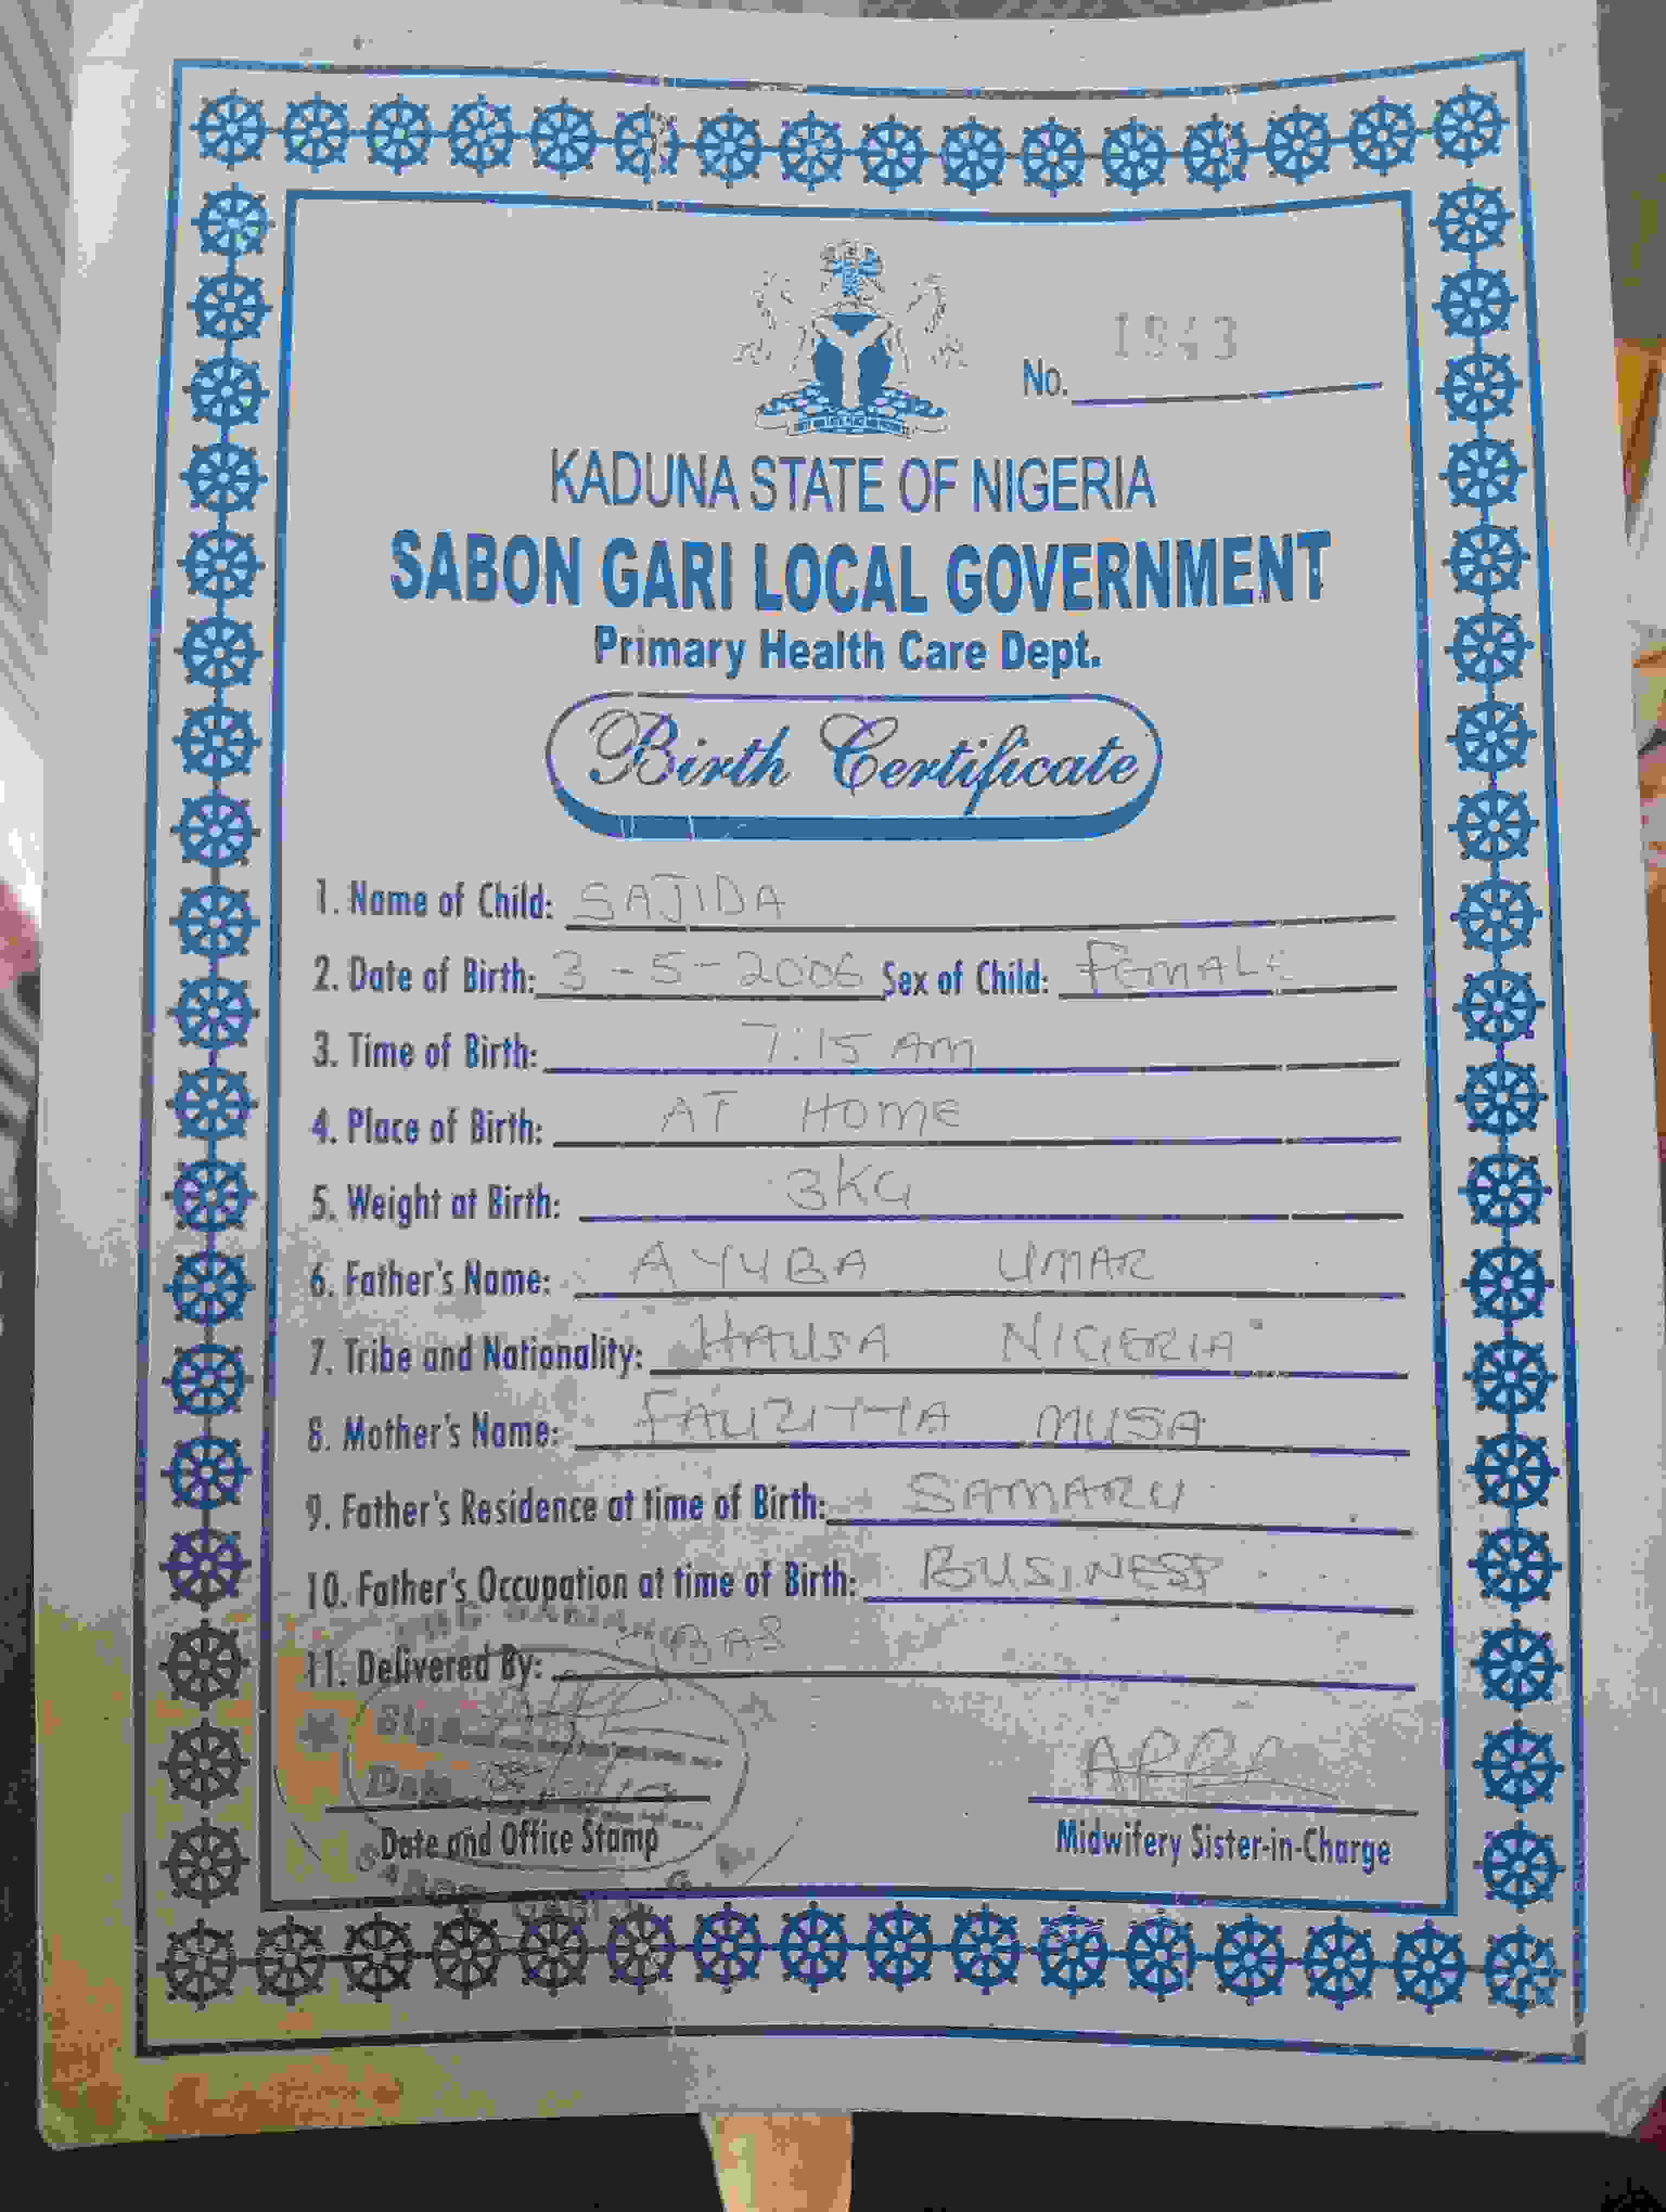 No. 1943
KADUNA STATE OF NIGERIA
SABON GARI LOCAL GOVERNMENT
Primary Health Care Dept.
Birth Certificate
1. Name of Child: SAJIDA
2. Date of Birth: 3-5-2006 Sex of Child: FEMALE
3. Time of Birth: 7:15 AM
4. Place of Birth: AT HOME
5. Weight at Birth: 3KG
6. Father's Name: AYUBA UMAR
7. Tribe and Nationality: HAUSA NIGERIA
8. Mother's Name: FAUZIYYA MUSA
9. Father's Residence at time of Birth: SAMARU
10. Father's Occupation at time of Birth: BUSINESS
11. Delivered By:
Sign
Date
Date and Office Stamp
Midwifery Sister-in-Charge